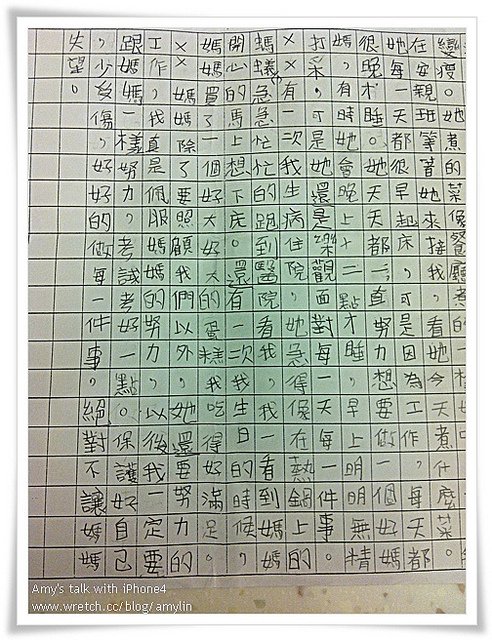 變瘦。她煮的菜像餐廳煮的
在安親班等著她來接我，看她今天煮什麼菜。
她每一天都很早起床，可是因為工作，每天都
很晚才睡。她天天都一直努力想要做一個好媽
媽，有時她會晚上十二點才睡，早上明明無精
打采，可是她還是樂觀面對每一天每一件事。
××有一次我生病住院，她急得像在熱鍋上的
螞蟻急急忙忙的跑到醫院看我，我一看到媽媽
開心的馬上想下床。還有一次我生日的時候，
媽媽買了一個好大好大的蛋糕，我吃得好滿足。
××媽媽除了要照顧我們以外，她還要努力的
工作，我真是佩服媽媽的努力，以後我一定要
跟媽媽一樣努力，考試考好一點。保護好自己
，少受傷，好好的做每一件事，絕對不讓媽媽
失望。
Amy's talk with iPhone4
www.wretch.cc/blog/amylin